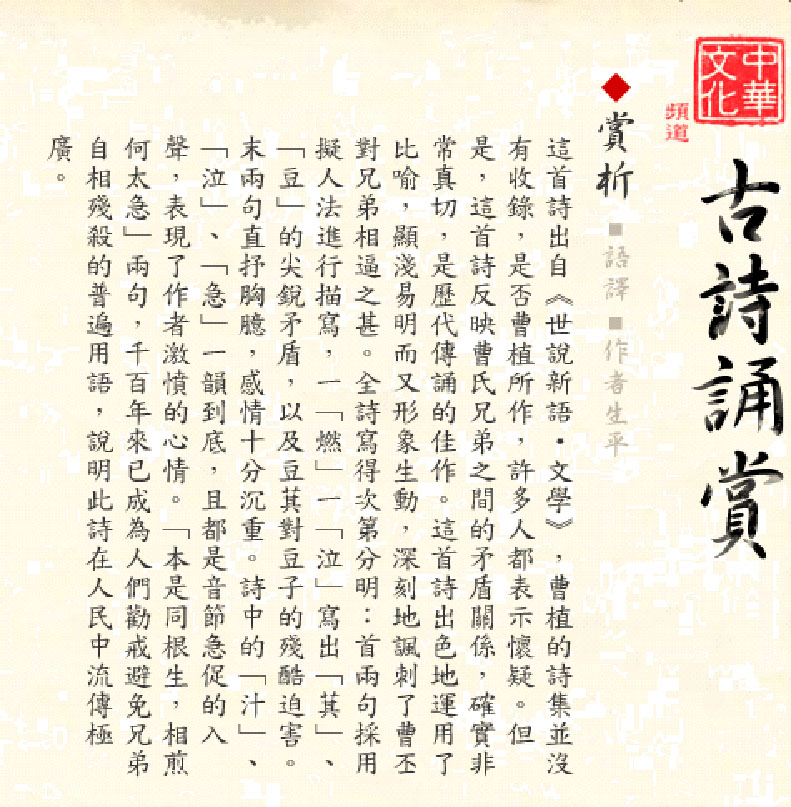 中華
文化
頻道
古詩誦賞
◆賞析
■語譯■作者生平
這首詩出自《世說新語·文學》,曹植的詩集並沒
有收錄,是否曹植所作,許多人都表示懷疑。但
是,這首詩反映曹氏兄弟之間的矛盾關係,確實非
常真切,是歷代傳誦的佳作。這首詩出色地運用了
比喻,顯淺易明而又形象生動,深刻地諷刺了曹丕
對兄弟相逼之甚。全詩寫得次第分明:首兩句採用
擬人法進行描寫,一「燃」一「泣」寫出「萁」、
「豆」的尖銳矛盾,以及豆萁對豆子的殘酷迫害。
末兩句直抒胸臆,感情十分沉重。詩中的「汁」、
「泣」、「急」一韻到底,且都是音節急促的入
聲,表現了作者激憤的心情。「本是同根生,相煎
何太急」兩句,千百年來已成為人們勸戒避免兄弟
自相殘殺的普遍用語,說明此詩在人民中流傳極
廣。